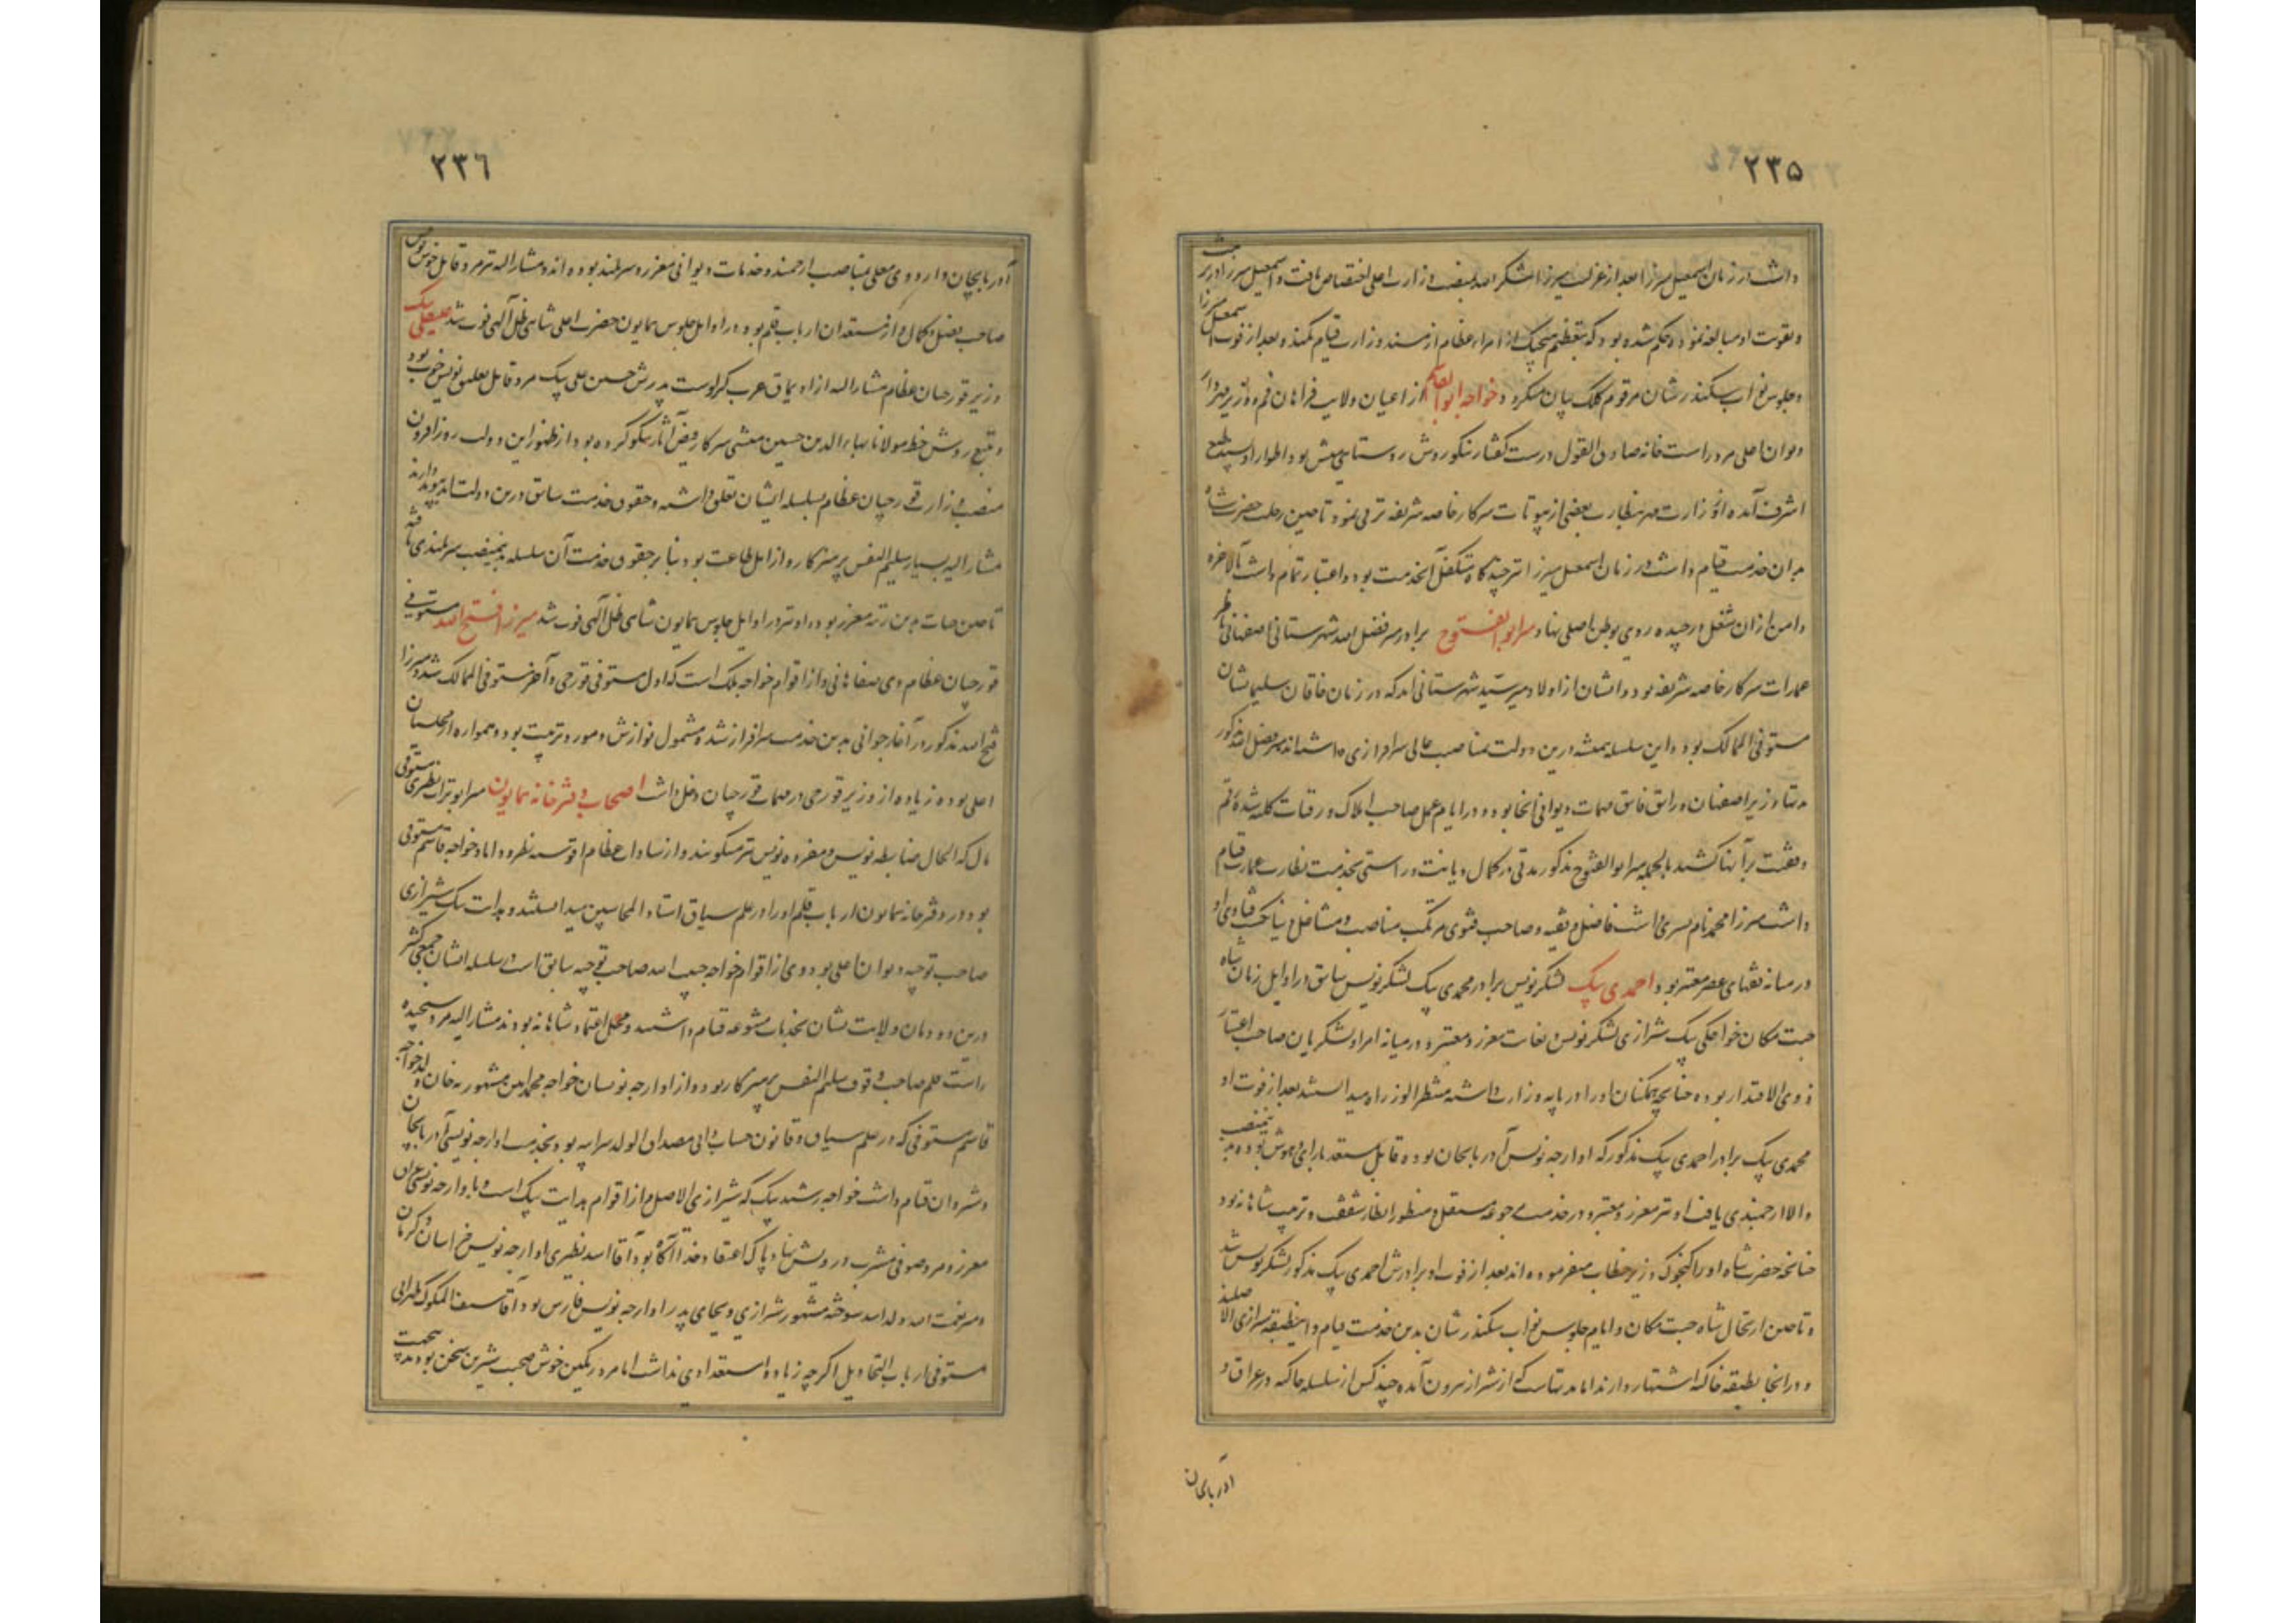 ۲۳۵
داشت در زمان اسمعیل میرزا بعد از عزلت میرزا شکرالله بمنصب وزارت اعلی اختصاص یافت و اسمعیل میرزا در تربیت
و تقویت او مبالغه نموده حکم شده بود که بتعظیم هیچیک از امراء عظام از مسند وزارت قیام نکند و بعد از فوت اسمعیل میرزا
و جلوس نواب سکندر شأن مرقوم کلک بیان میگردد خواجه ابوالقاسم از اعیان ولایت فراهان قم و وزیر
دیوان اعلی مرد راست خانه صادق القول درست گفتار نیکو روش روستایی منش بود و اطوار او پسند طبع
اشرف آمده از وزارت بنظارت بعضی از بیوتات سرکار خاصه شریفه ترقی نمود تا حین رحلت حضرت شاه
بدان خدمت قیام داشت در زمان اسمعیل میرزا نیز چندگاه متکفل آنخدمت بود و اعتبار تمام داشت بالاخره
دامن از آن شغل درچیده روی بوطن اصلی نهاد میر ابوالفتوح برادر میر فضل الله شهرستانی اصفهانی ناظر
عمارات سرکار خاصه شریفه بود و ایشان از اولاد میر سید شهرستانی‌اند که در زمان خاقان سلیمان شان
مستوفی الممالک بود و این سلسله همیشه درین دولت بمناصب عالی سرافرازی داشته‌اند میر فضل الله مذکور
مدتها وزیر اصفهان و راتق فاتق مهمات دیوانی آنجا بود و در ایام عمل صاحب املاک و رقبات کلیه شده رقم
وقفیت بر آنها کشید بالجمله میر ابوالفتوح مذکور مدتی در کمال دیانت و راستی بخدمت نظارت عمارت قیام
داشت میرزا محمد نام پسری داشت فاضل و فقیه و صاحب فتوی مرتکب مناصب و مشاغل فتاوی او
در میانه فقهای عصر معتبر بود احمدی بیک لشکرنویس برادر محمدی بیک لشکرنویس سابق در اوایل زمان شاه
جنت مکان خواجکی بیک شیرازی لشکرنویس بغایت معزز و معتبر و در میانه امرا و لشکریان صاحب اعتبار
ذوی الاقتدار بوده چنانچه همکنان او را در پایه وزارت داشته منتظر الوزراه میدانستند بعد از فوت او
محمدی بیک برادر احمدی بیک مذکور که اوارجه نویس آذربایجان بوده قابل مستعد بارای و هوش بوده بدینمنصب
والا ارجمندی یافت او نیز معزز و معتبر و در خدمت مستقل و منظور انظار شفقت و تربیت شاهانه بود
چنانچه حضرت شاه او را وزیر خطاب میفرموده‌اند بعد از فوت او برادرش احمدی بیک مذکور لشکرنویس شد
و تا حین ارتحال شاه جنت مکان و ایام جلوس نواب سکندر شان بدین خدمت قیام داشت طبقه شیرازی الاصلند
و در آنجا بطبقه خاکه اشتهار دارند اما مدتهاست که از شیراز بیرون آمده چند کس از سلسله خاکه در عراق و
آذربایجان
۲۳۶
آذربایجان و اردوی معلی بمناصب ارجمند و خدمات دیوانی معزز و سربلند بوده‌اند و مشارالیه نیز مرد قابل خوش نویس
صاحب فضل و کمال و از مستعدان ارباب قلم بود در اوایل جلوس همایون حضرت اعلی شاهی ظل آلهی فوت شد بیک
وزیر قورچیان عظام مشارالیه از اویماق عرب کرلوست پدرش حسین علی بیک مرد قابل تعلیق نویس خوب بود
و تتبع روش خط مولانا بهاءالدین حسین منشی سرکار فیض آثار نیکو کرده بود از ظهور این دولت روزافزون
منصب وزارت قورچیان عظام بسلسله ایشان تعلق داشته و حقوق خدمت سابق درین دولت ابد پیوند دارند
مشارالیه بسیار سلیم النفس پرهیزکار و از اهل طاعت بود بنا بر حقوق خدمت آن سلسله بدینمنصب سربلندی یافته
تا حین حیات بدین رتبه معزز بود و او نیز در اوایل جلوس همایون شاهی ظل آلهی فوت شد میرزا فتح الله مستوفی
قورچیان عظام وی صفاهانی و از اقوام خواجه ملک است که اول مستوفی قورچی و آخر مستوفی الممالک شد و میرزا
فتح الله مذکور در آغاز جوانی بدین خدمت سرافراز شده مشمول نوازش و مورد تربیت بود و همواره از مجلسیان
اعلی بوده زیاده از وزیر قورچی در مهمات قورچیان دخل داشت اصحاب دفترخانه همایون میر ابوتراب نطنزی مستوفی
مال که الحال ضابطه نویس و مفرده نویس نیز میگویند و از سادات عظام قریه نطنز و داماد خواجه قاسم مستوفی
بود و در دفترخانه همایون ارباب قلم او را در علم سیاق استاد المحاسبین میدانستند هدایت بیک شیرازی
صاحب توجیه دیوان اعلی بود و وی از اقوام خواجه حبیب الله صاحب توجیه سابق است و سلسله ایشان جمعی کثیر
درین دودمان ولایت نشان بخدمات متنوعه قیام داشتند و محل اعتماد شاهانه بودند مشارالیه مرد سنجیده
راست قلم صاحب وقوف سلیم النفس پرهیزکار بود و از اوارجه نویسان خواجه محمد امین مشهور به خان ولد خواجه
قاسم مستوفی که در علم سیاق و قانون حساب دانی مصداق الولد سر ابیه بود بخدمت اوارجه نویسی آذربایجان
و شروان قیام داشت خواجه رشید بیک که شیرازی الاصل و از اقوام هدایت بیک است و باوارجه نویسی عراق
معزز و مرد صوفی مشرب درویش نهاد پاک اعتقاد خدا آگاه بود آقا اسد نطنزی اوارجه نویس خراسان و کرمان
و میر نعمت الله ولد اسد سوخته مشهور شیرازی و بجای پدر اوارجه نویس فارس بود آقا طهرانی
مستوفی ارباب التحاویل اگرچه زیاده استعدادی نداشت اما مرد رنگین خوش صحبت شیرین سخن بود